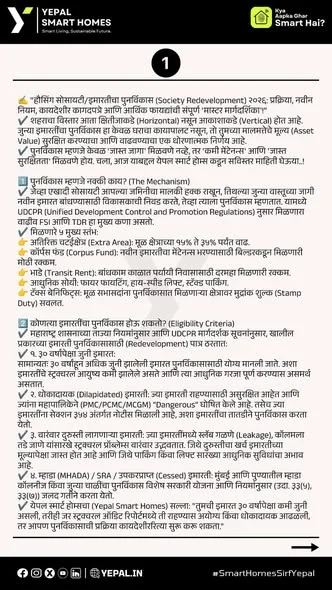 YEPAL
SMART HOMES
Smart Living, Sustainable Future.
Kya
Aapka Ghar
Smart Hai?
1
✍ "हौसिंग सोसायटी/इमारतीचा पुनर्विकास (Society Redevelopment) २०२६: प्रक्रिया, नवीन
नियम, कायदेशीर कागदपत्रे आणि आर्थिक फायद्यांची संपूर्ण 'मास्टर मार्गदर्शिका'!"
✔ शहराचा विस्तार आता क्षितीजाकडे (Horizontal) नसून आकाशाकडे (Vertical) होत आहे.
जुन्या इमारतींचा पुनर्विकास हा केवळ घराचा कायापालट नसून, तो तुमच्या मालमत्तेचे मूल्य (Asset
Value) सुरक्षित करण्याचा आणि वाढवण्याचा एक धोरणात्मक निर्णय आहे.
✔ पुनर्विकास म्हणजे केवळ 'जास्त जागा' मिळवणे नव्हे, तर 'कमी मेंटेनन्स' आणि 'जास्त
सुरक्षितता' मिळवणे होय. चला, आज याबद्दल येपल स्मार्ट होम्स कडून सविस्तर माहिती घेऊया..!
1 पुनर्विकास म्हणजे नक्की काय? (The Mechanism)
✔ जेव्हा एखादी सोसायटी आपल्या जमिनीचा मालकी हक्क राखून, तिथल्या जुन्या वास्तूच्या जागी
नवीन इमारत बांधण्यासाठी विकासकाची निवड करते, तेव्हा त्याला पुनर्विकास म्हणतात. यामध्ये
UDCPR (Unified Development Control and Promotion Regulations) नुसार मिळणारा
वाढीव FSI आणि TDR हा कणा असतो.
✔ मिळणारे ५ मुख्य स्तंभ:
👉 अतिरिक्त चटईक्षेत्र (Extra Area): मूळ क्षेत्राच्या १५% ते ३५% पर्यंत वाढ.
👉 कॉर्पस फंड (Corpus Fund): नवीन इमारतीचा मेंटेनन्स भरण्यासाठी बिल्डरकडून मिळणारी
मोठी रक्कम.
👉 भाडे (Transit Rent): बांधकाम काळात पर्यायी निवासासाठी दरमहा मिळणारी रक्कम.
👉 आधुनिक सोयी: फायर फायटिंग, हाय-स्पीड लिफ्ट, स्टॅक पार्किंग.
👉 टॅक्स बेनिफिट्स: मूळ सभासदांना पुनर्विकासात मिळणाऱ्या क्षेत्रावर मुद्रांक शुल्क (Stamp
Duty) सवलत.
2 कोणत्या इमारतींचा पुनर्विकास होऊ शकतो? (Eligibility Criteria)
✔ महाराष्ट्र शासनाच्या ताज्या नियमांनुसार आणि UDCPR मार्गदर्शक सूचनांनुसार, खालील
प्रकारच्या इमारती पुनर्विकासासाठी (Redevelopment) पात्र ठरतात:
✔ १. ३० वर्षांपेक्षा जुनी इमारत:
सामान्यतः ३० वर्षांहून अधिक जुनी झालेली इमारत पुनर्विकासासाठी योग्य मानली जाते. अशा
इमारतींचे स्ट्रक्चरल आयुष्य कमी झालेले असते आणि त्या आधुनिक गरजा पूर्ण करण्यास असमर्थ
असतात.
✔ २. धोकादायक (Dilapidated) इमारती: ज्या इमारती राहण्यासाठी असुरक्षित आहेत आणि
ज्यांना महापालिकेने (PMC/PCMC/MCGM) "Dangerous" घोषित केले आहे. तसेच ज्या
इमारतींना सेक्शन ३५४ अंतर्गत नोटीस मिळाली आहे, अशा इमारतींचा तातडीने पुनर्विकास करता
येतो.
✔ ३. वारंवार दुरुस्ती लागणाऱ्या इमारती: ज्या इमारतींमध्ये स्लॅब गळणे (Leakage), कॉलमला
तडे जाणे यांसारखे स्ट्रक्चरल प्रॉब्लेम्स वारंवार उद्भवतात. जिथे दुरुस्तीचा खर्च इमारतीच्या
मूल्यापेक्षा जास्त होत आहे आणि जिथे पार्किंग किंवा लिफ्ट सारख्या आधुनिक सुविधांचा अभाव
आहे.
✔ ४. म्हाडा (MHADA) / SRA / उपकरप्राप्त (Cessed) इमारती: मुंबई आणि पुण्यातील म्हाडा
कॉलनीज किंवा जुन्या चाळींचा पुनर्विकास विशेष सरकारी योजना आणि नियमांनुसार (उदा. ३३(५),
३३(७)) जलद गतीने करता येतो.
✔ येपल स्मार्ट होम्सचा (Yepal Smart Homes) सल्ला: "तुमची इमारत ३० वर्षांपेक्षा कमी जुनी
असली, तरीही जर स्ट्रक्चरल ऑडिट रिपोर्टमध्ये ती राहण्यास अयोग्य किंवा धोकादायक आढळली,
तर आपण पुनर्विकासाची प्रक्रिया कायदेशीररित्या सुरू करू शकता."
YEPAL.IN
#SmartHomesSirfYepal